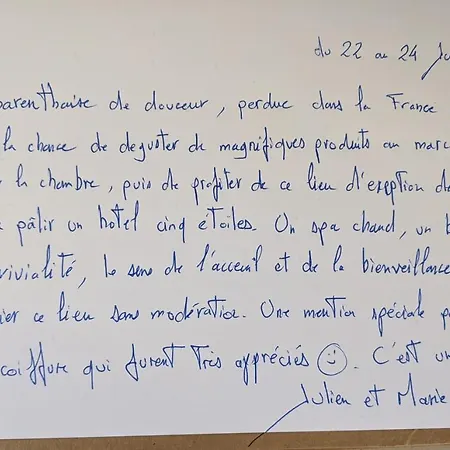 du 22 au 24 Ju
parenthaise de douceur, perdue dans la France
la chance de deguster de magnifiques produits au marc
la chambre, puis de profiter de ce lieu d'exeption de
pâlir un hotel cinq étoiles. Un spa chaud, un b
vivialité, le sens de l'acceuil et de la bienveillance
ier ce lieu sans modération. Une mention spéciale p
coiffure qui furent très appréciés ☺. C'est un
Julien et Marie